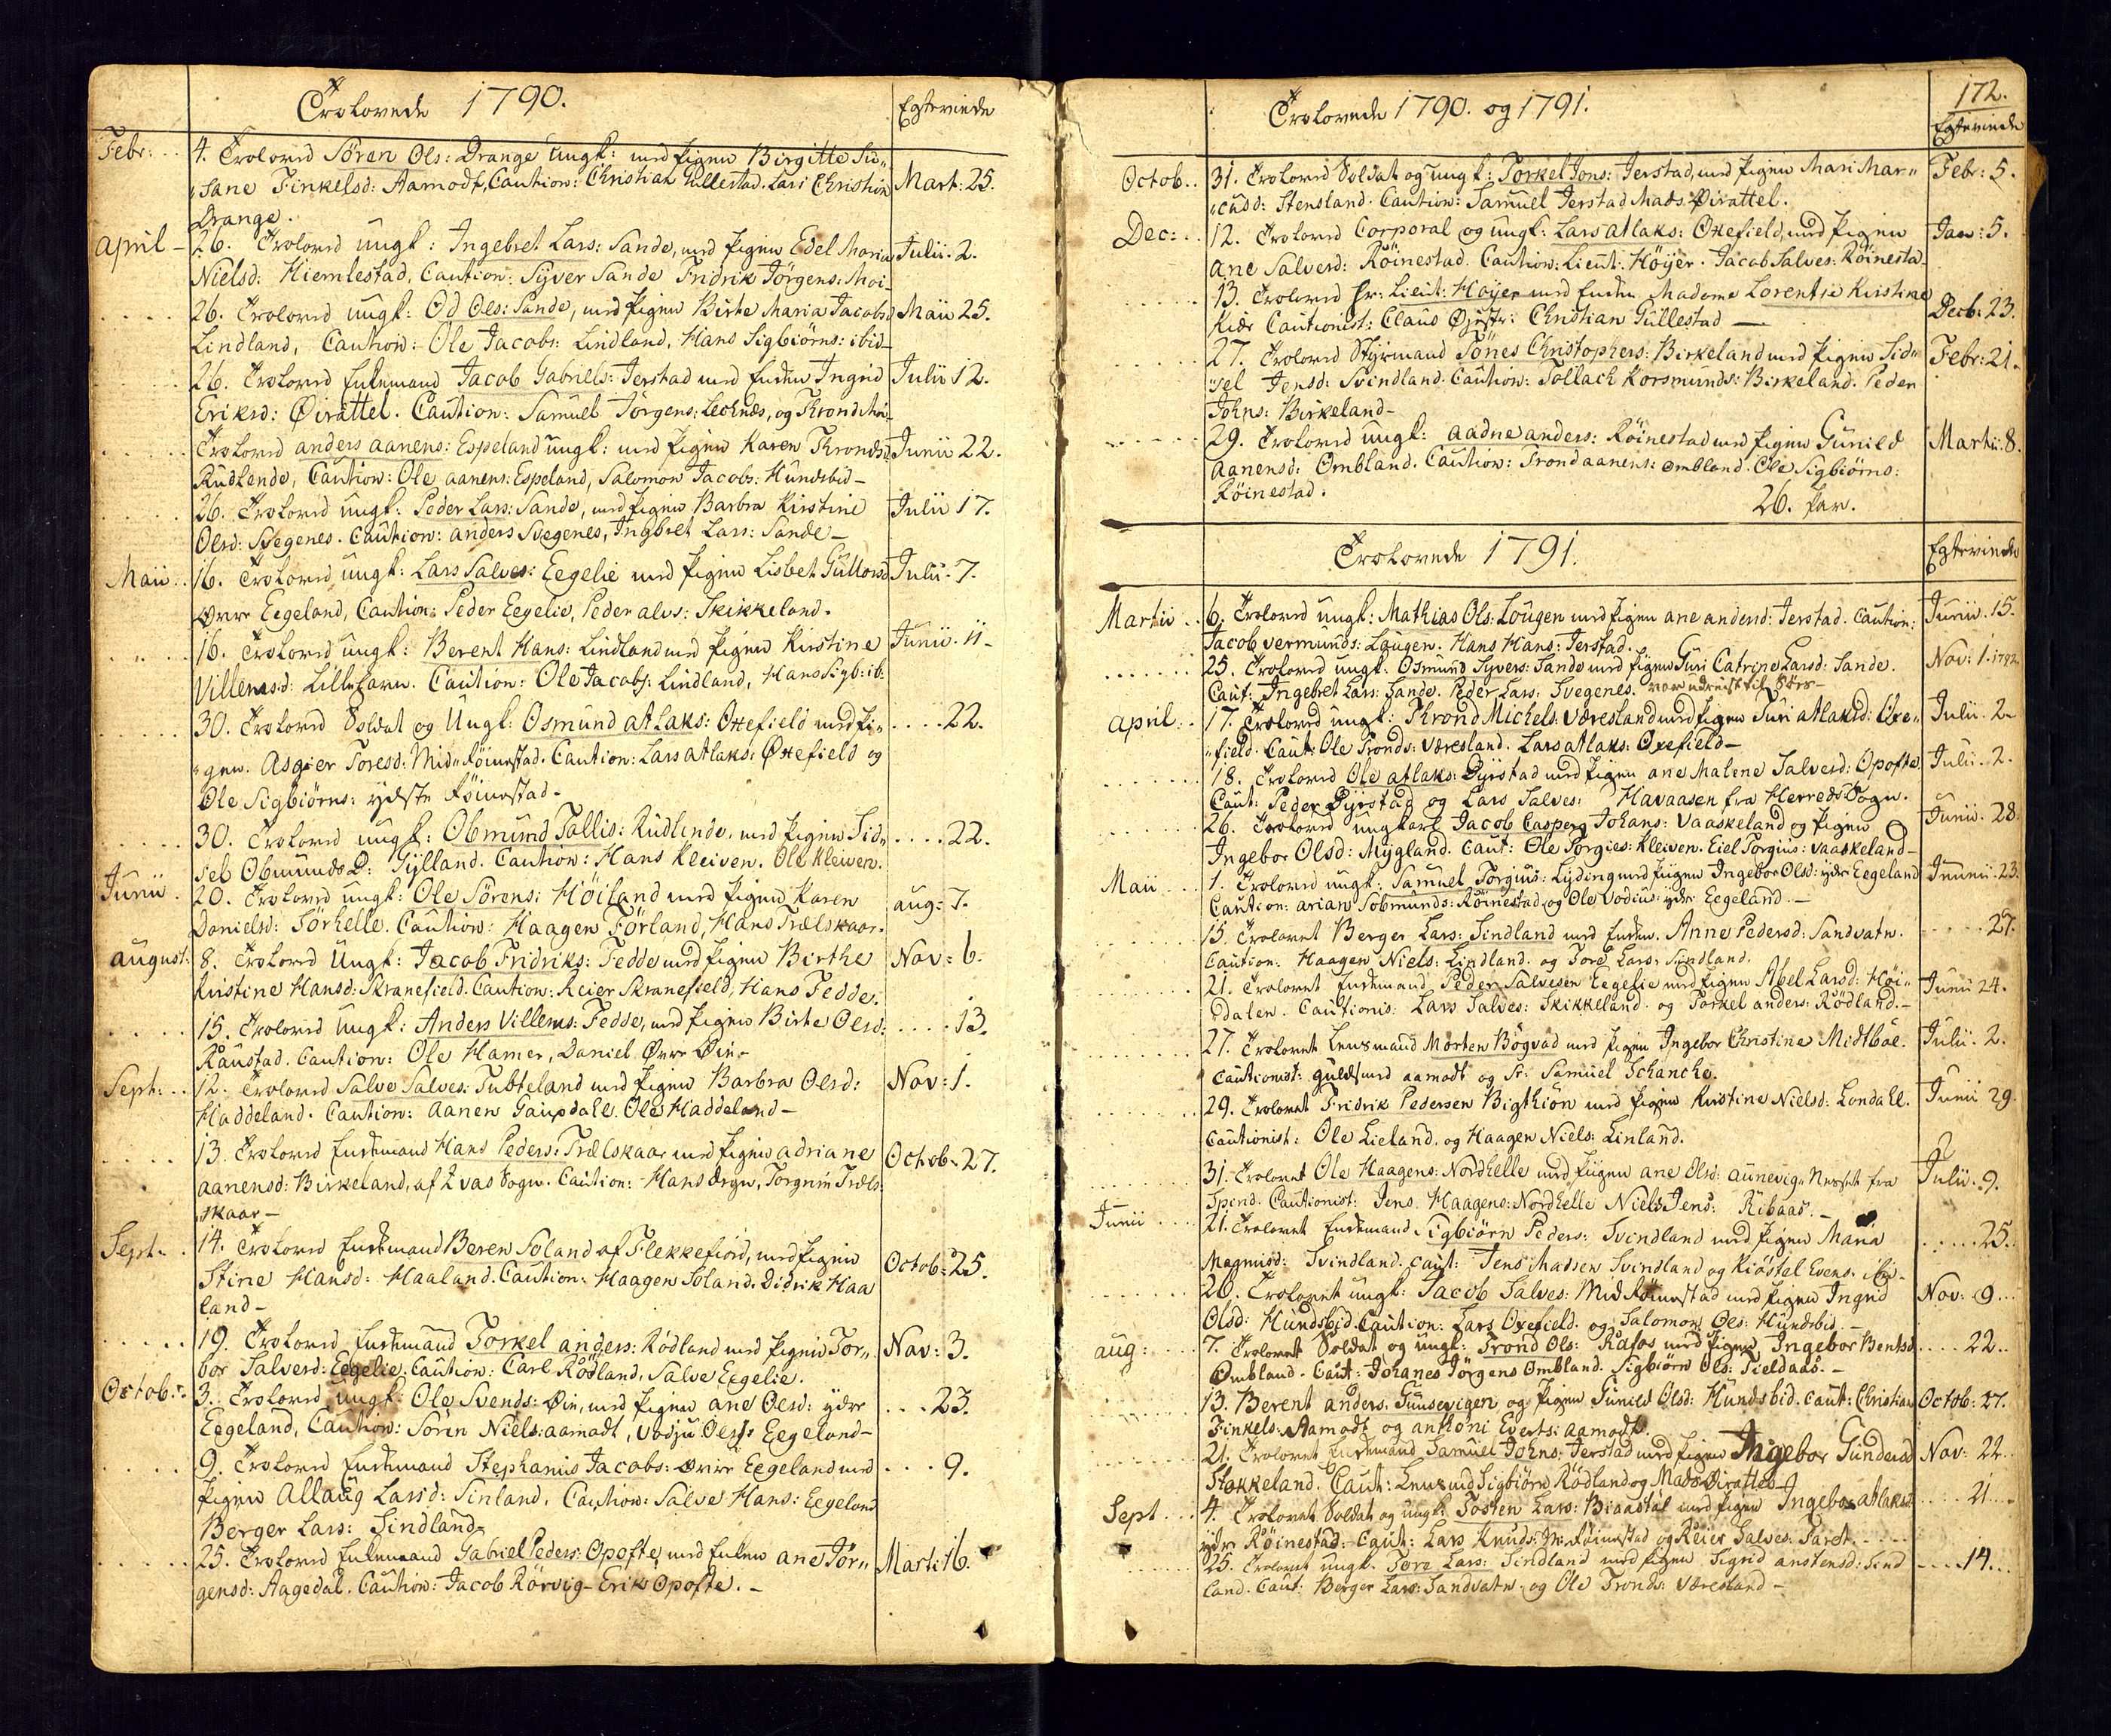 Trolovede 1790.
Egteviede
Febr: 4. Trolovd Sören Ols: Drange Ungk: med Pigen Birgitte Su„ Mart: 25.
„sane Finkelsd: Aamodt, Caution: Christian Gullestad. Lars Christian
Drange.
April 26. Trolovd ungk: Ingebret Lars: Sande, med Pigen Edel Maria Julii 2.
Nielsd: Hiemlestad, Caution: Syver Sande Fridrik Jörgens: Moi
26. Trolovd ungk: Od Ols: Sande, med Pigen Birte Maria Jacobsd Maii 25.
Lindland, Caution: Ole Jacobs: Lindland, Hans Sigbiörns: ibid
26. Trolovd Enkemand Jacob Gabriels: Jerstad med Enken Ingrid Julii 12.
Eriksd: Öirattel. Caution: Samuel Jörgens: Lechnes, og Thrond Moi
Trolovd Anders Aanens: Espeland ungk: med Pigen Karen Throndsd Junii 22.
Rudlende, Caution: Ole Aanens: Espeland, Salomon Jacobs: Hundsbid
26. Trolovd ungk: Peder Lars: Sande, med Pigen Barbra Kirstine Julii 17.
Olsd: Svegenes. Caution: Anders Svegenes, Ingbret Lars: Sande
Maii 16. Trolovd ungk: Lars Salves: Eegelie med Pigen Lisbet Gullovsd Julii 7.
Övre Eegeland, Caution: Peder Eegelie, Peder Alvs: Skikkeland.
16. Trolovd ungk: Berent Hans: Lindland med Pigen Kirstine Junii 11
Villemsd: Lillehavn. Caution: Ole Jacobs: Lindland, Hans Sigb: ib:
30. Trolovd Soldat og Ungk: Osmund Atlaks: Oxefield med Pi„ 22.
„gen. Asgier Toresd: Mid„Röinestad. Caution: Lars Atlaks: Oxefield og
Ole Sigbiörns: ydste Röinestad
30. Trolovd ungk: Obmund Tallis: Rudlende, med Pigen Sid„ 22.
sel Obmunds D: Gylland. Caution: Hans Kleiven. Ole Kleiven.
Junii 20. Trolovd ungk: Ole Sörens: Höiland med Pigen Karen aug: 7.
Danielsd: Sörhelle. Caution: Haagen Förland, Hans Trælskaar.
August: 8. Trolovd Ungk: Jacob Fridriks: Fedde med Pigen Birthe Nov: 6.
Kirstine Hansd: Skranefield. Caution: Reier Skranefield, Hans Fedde.
15. Trolovd Ungk: Anders Villems: Fedde, med Pigen Birte Olsd: 13.
Raustad. Caution: Ole Hamer, Daniel Övre Öie
Sept: 12. Trolovd Salve Salves: Tubteland med Pigen Barbra Olsd: Nov: 1.
Haddeland. Caution: Aanen Gaupdahl. Ole Haddeland
13. Trolovd Enkemand Hans Peders: Trælskaar med Pigen Adriane Octob: 27.
Aanensd: Birkeland, af Qvas Sogn. Caution: Hans Drgn, Torgrim Træls
„skaar
Sept. 14. Trolovd Enkemand Beren Soland af Flekkefiord, med Pigen Octob: 25.
Stine Hansd: Haaland. Caution: Haagen Soland. Didrik Haa
land
19. Trolovd Enkemand Torkel Anders: Rödland med Pigen Tor„ Nov: 3.
bor Salvesd: Eegelie. Caution: Carl Rödland, Salve Eegelie.
Octob: 3. Trolovd ungk: Ole Svends: Öie, med Pigen Ane Olsd: ydre 23.
Eegeland, Caution: Sören Niels: Aamodt, Vodju Ols: Eegeland
9. Trolovd Enkemand Stephanus Jacobs: Övre Eegeland med 9.
Pigen Allaug Larsd: Sinland, Caution: Salve Hans: Eegeland
Berger Lars: Sindland
25. Trolovd Enkemand Gabriel Peders: Opofte, med Enken Ane Jör„ Mart: 16.
gensd: Aagedal. Caution: Jacob Rörvig Erik Opofte.
172.
Trolovede 1790. og 1791.
Egteviede
Octob: 31. Trolovd Soldat og ungk: Torkel Jons: Jerstad, med Pigen Mari Mar„ Febr: 5.
„cusd: Stensland. Caution: Samuel Jerstad Mads Öirattel.
Dec: 12. Trolovd Corporal og ungk: Lars Atlaks: Oxefield, med Pigen Jan: 5.
Ane Salvesd: Röinestad. Caution: Lieut: Höyer. Jacob Salves: Röinestad
13. Trolovd Hr: Lieut: Höyer med Enken Madame Lorentje Kirstine Decb: 23.
Kier Cautionist: Claus Christian Gullestad
27. Trolovd Styrmand Tönes Christophers: Birkeland med Pigen Sid„ Febr: 21.
„sel Jensd: Svindland. Caution: Tollach Korsmunds: Birkeland. Peder
Johns: Birkeland
29. Trolovd ungk: Aadne Anders: Röinestad med Pigen Gunild Martii 8.
Aanensd: Ombland. Caution: Trond Aanens: Ombland. Ole Sigbiörns:
Röinestad.
26. Par.
Trolovede 1791.
Egteviede
Martii 6. Trolovd ungk: Mathias Ols: Lougen med Pigen Ane Andersd: Jerstad. Caution: Junii. 15.
Jacob Vermunds: Laugen. Hans Hans: Jerstad.
25. Trolovd ungk. Osmund Syvers: Sande med Pigen Guri Catrine Larsd: Sande. Nov: 1. 1792
Caut: Ingebret Lars: Sande. Peder Lars: Svegenes. var udreist til Söes
April 17. Trolovd ungk: Thrond Michels: Væresland med Pigen Siri Atlaksd: Oxe„ Julii. 2.
„field. Caut: Ole Tronds: Væresland. Lars Atlaks: Oxefield
18. Trolovd Ole Atlaks: Dyrstad med Pigen Ane Malene Salvesd: Opofte Julii. 2.
Caut: Peder Dyrstad og Lars Salves: Havaasen fra Herreds Sogn.
26. Trolovd ungkarl Jacob Casper Johans: Vaaskeland og Pigen Junii. 28.
Ingebor Olsd: Mygland. Caut: Ole Torgies: Kleiven. Eiel Torgius: Vaaskeland
Maii 1. Trolovd ungk: Samuel Torgius: Lyding med Pigen Ingebor Olsd: ydre Eegeland Junii. 23.
Caution: Arian Sobmunds: Röinestad og Ole Vodius: ydre Eegeland.
15. Trolovet Berger Lars: Sindland med Enken. Anne Pedersd: Sandvatn. 27.
Caution: Haagen Niels: Lindland. og Tore Lars: Sindland.
21. Trolovet Enkemand Peder Salvesen Eegelie med Pigen Abel Larsd: Höi„ Junii 24.
dalen. Cautionis: Lars Salves: Skikkeland. og Torkel Anders: Rödland.
27. Trolovet Lensmand Morten Bögvad med Pigen Ingebor Christine Midtböe. Julii. 2.
Cautionist: Guldsmed Aamodt og Sr. Samuel Schancke.
29. Trolovet Fridrik Pedersen Bigthion med Pigen Kirstine Nielsd: Londahl. Junii 29.
Cautionist: Ole Lieland. og Haagen Niels: Linland.
31. Trolovet Ole Haagens: Nordhelle med Pigen Ane Olsd: Aunevig„Nesset fra Julii. 9.
Spind. Cautionist: Jens Haagens: Nordhelle Niels Jens: Ribaas.
Junii 21. Trolovet Enkemand Sigbiörn Peders: Svindland med Pigen Maria 25.
Magnusd: Svindland. Caut: Jens Madsen Svindland og Kiöstel Evens: ibid
26. Trolovet ungk: Jacob Salves: Mid Röinestad med Pigen Ingrid Nov: 9.
Olsd: Hundsbid. Caution: Lars Oxefield. og Salomon Ols: Hundsbid.
aug: 7. Trolovet Soldat og ungk: Trond Ols: Rafos med Pigen Ingebor Bentsd 22.
Ombland. Caut: Johanes Jörgens Ombland. Sigbiörn Ols: Fieldaas.
13. Berent Anders. Gunsevigen og Pigen Gunild Olsd: Hundsbid. Caut: Christian Octob: 27.
Finkels: Aamodt og Anthoni Everts: Aamodt.
21. Trolovet Enkemand Samuel Johns: Jerstad med Pigen Ingebor Gundersd Nov: 22.
Stokkeland. Caut: Lensmd Sigbiörn Rödland og Mads Öirattel
Sept. 4. Trolovet Soldat og ungk: Tosten Lars: Braastal med Pigen Ingebor Atlaksd 21.
ydre Röinestad. Caut: Lars Knuds: Röinestad og Reier Salves: Parat.
25. Trolovet ungk. Tore Lars: Sindland med Pigen Sigrid Anstensd: Sind 14.
land. Caut: Berger Lars: Sandvatn. og Ole Tronds: Væresland